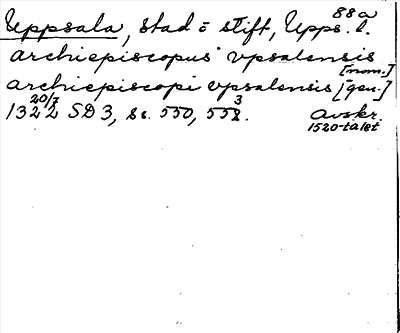 88a
Uppsala, stad o stift, Upps. l.
archiepiscopus vpsalensis
[nom.]
archiepiscopi vpsalensis [gen.]
20/7 3
1322 SD 3, s. 550, 552. Avskr.
1520-talet